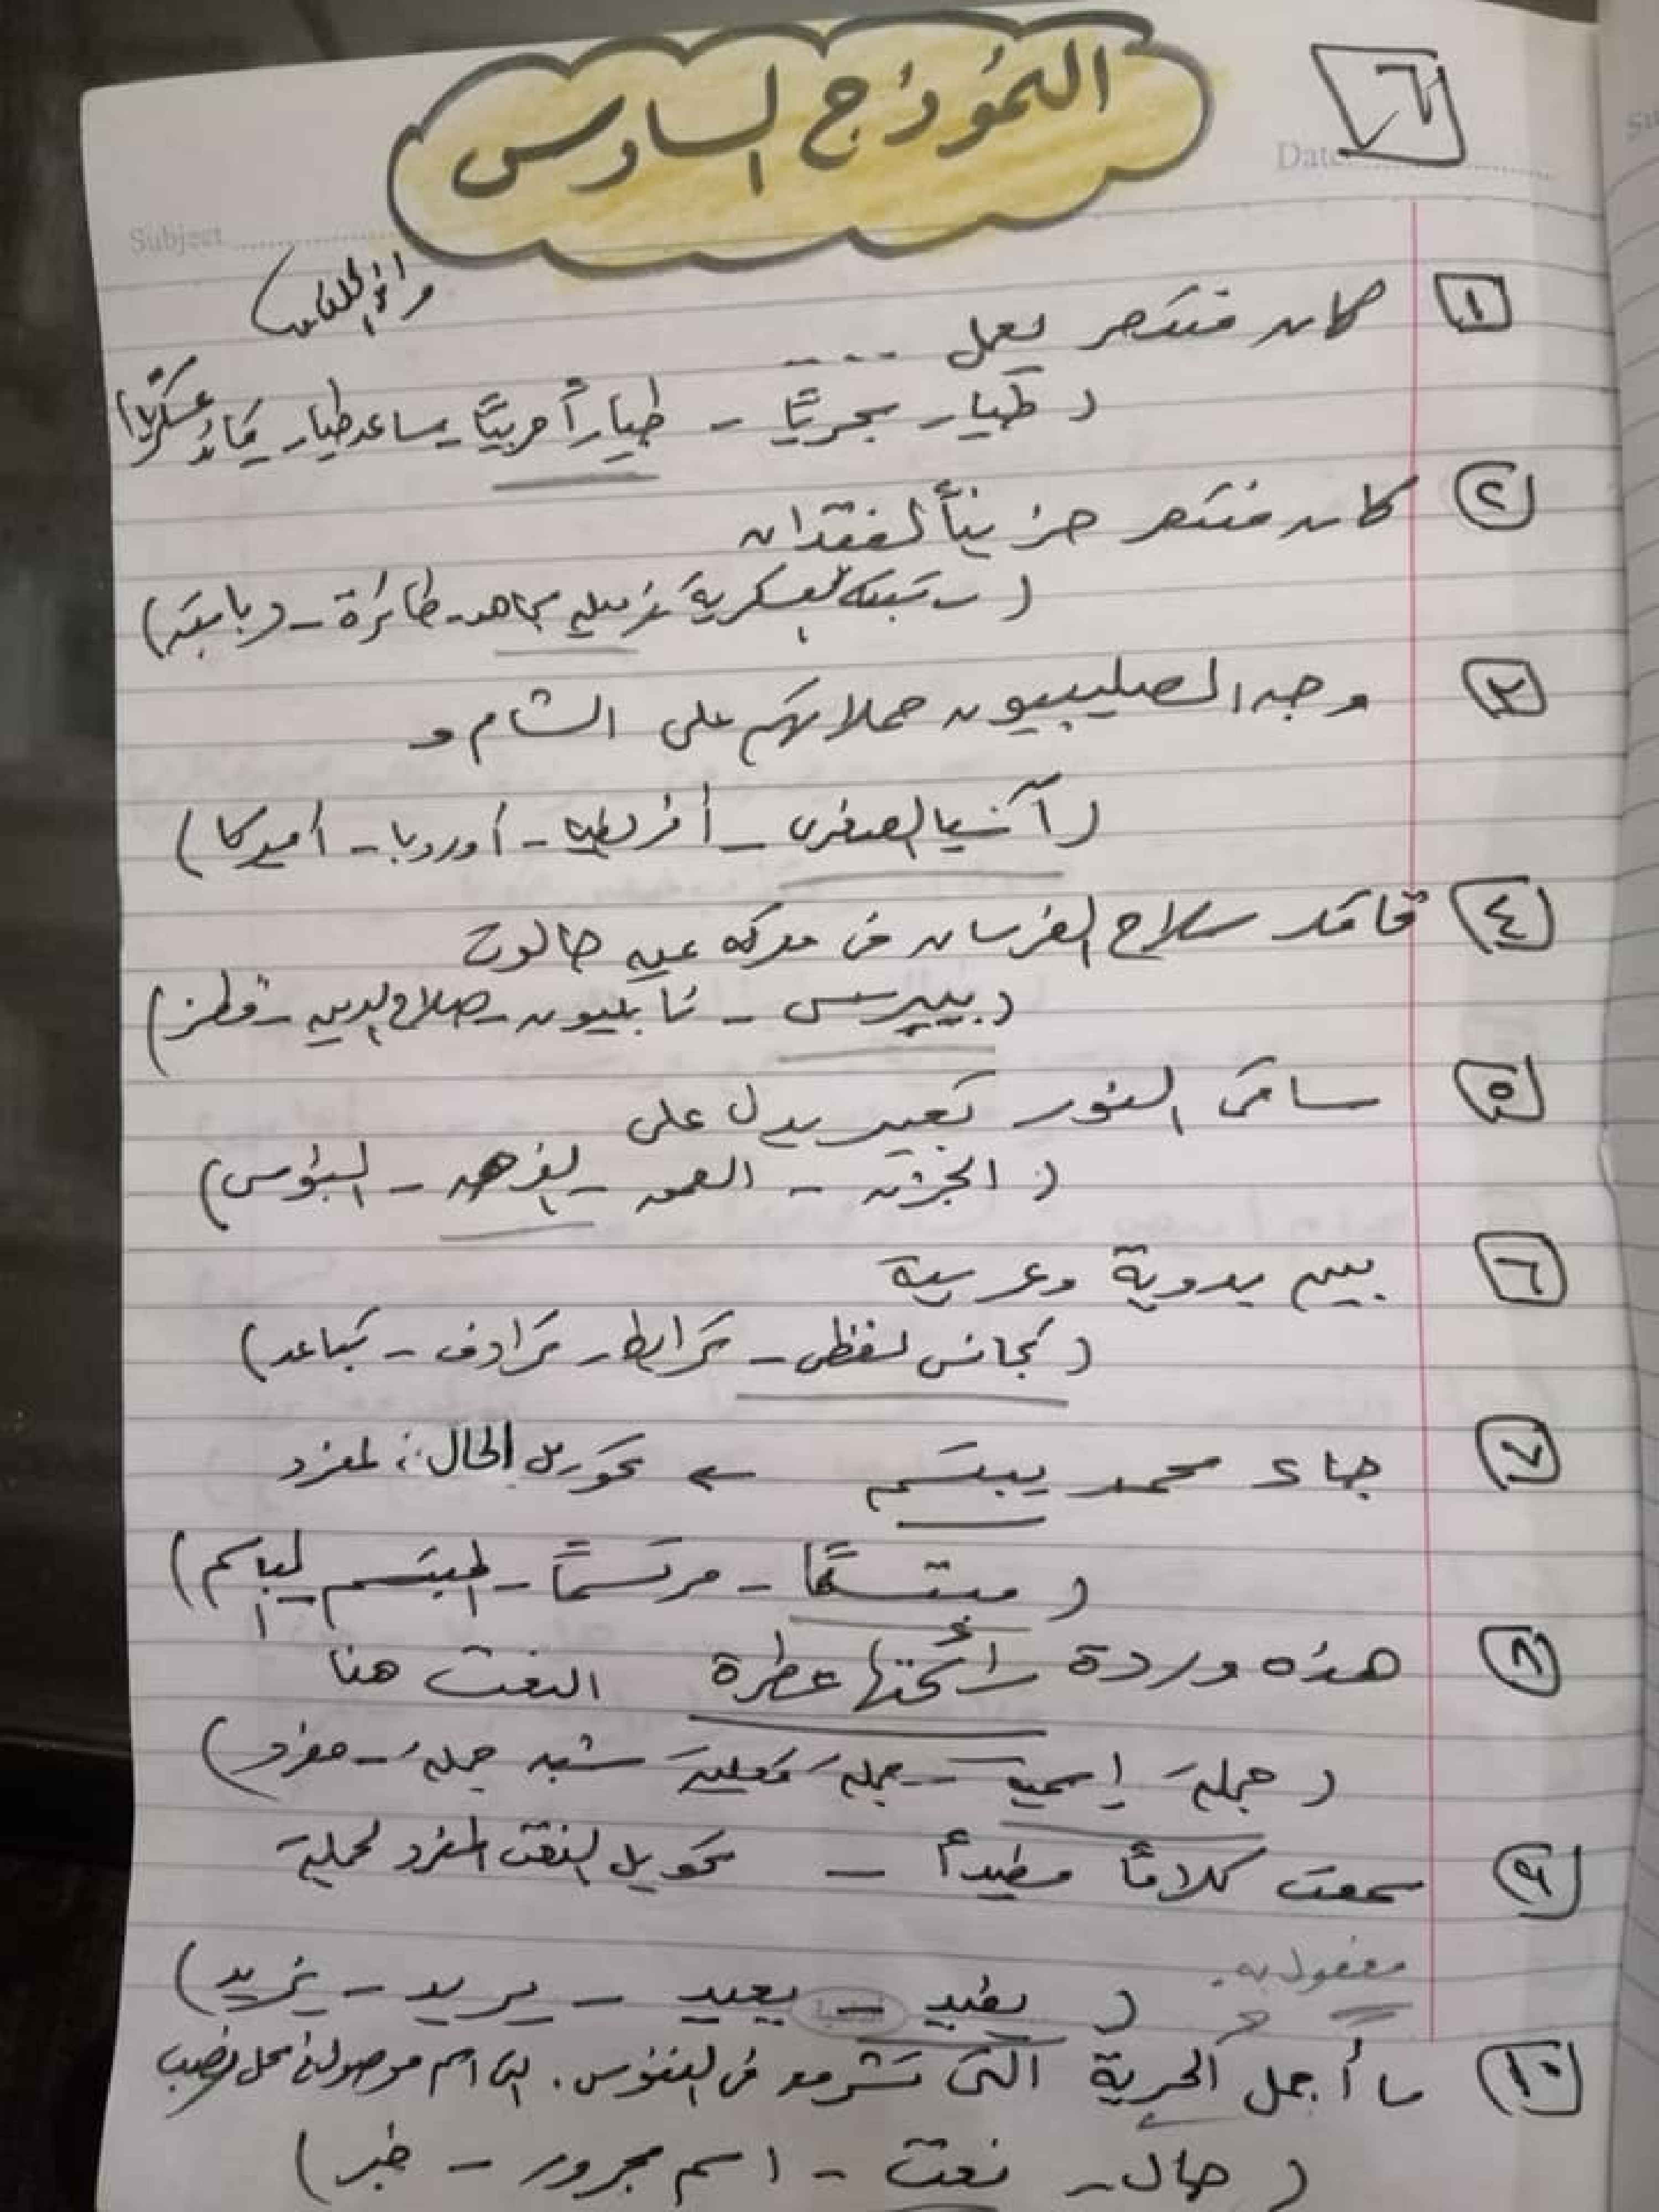 ٦
النموذج السادس
Date
Subject
١ كان منتصر يعمل ....
( طيار بحريًا - طيارًا حربيًا - مساعد طيار - قائد عسكريًا )
٢ كان منتصر حزينًا لفقدان
( رتبته العسكرية - زميله مجاهد - طائرة - دبابته )
٣ وجه الصليبيون حملاتهم على الشام و
( آسيا الصغرى - أفريقيا - أوروبا - أمريكا )
٤ قائد سلاح الفرسان في معركة عين جالوت
( بيبرس - نابليون - صلاح الدين - قطز )
٥ ساقى النور تعبير يدل على
( الحزن - - - البؤس )
٦ بين بدوية وعربية
( تجانس لفظى - ترابط - ترادف - تباعد )
٧ جاء محمد يبتسم ← تحويل الحال لمفرد
( مبتسمًا - مرتسمًا - المبتسم - الباسم )
٨ هذه وردة رائحتها عطرة النعت هنا
( جملة إسمية - جملة فعلية - شبه جملة - مفرد )
٩ سمعت كلامًا مفيدًا - تحويل النعت المفرد لجملة
مفعول به.
( يفيد - يعيد - يريد - يزيد )
١٠ ما أجمل الحرية التى تشرق فى النفوس. التى اسم موصول فى محل نصب
( حال - نعت - اسم مجرور - خبر )